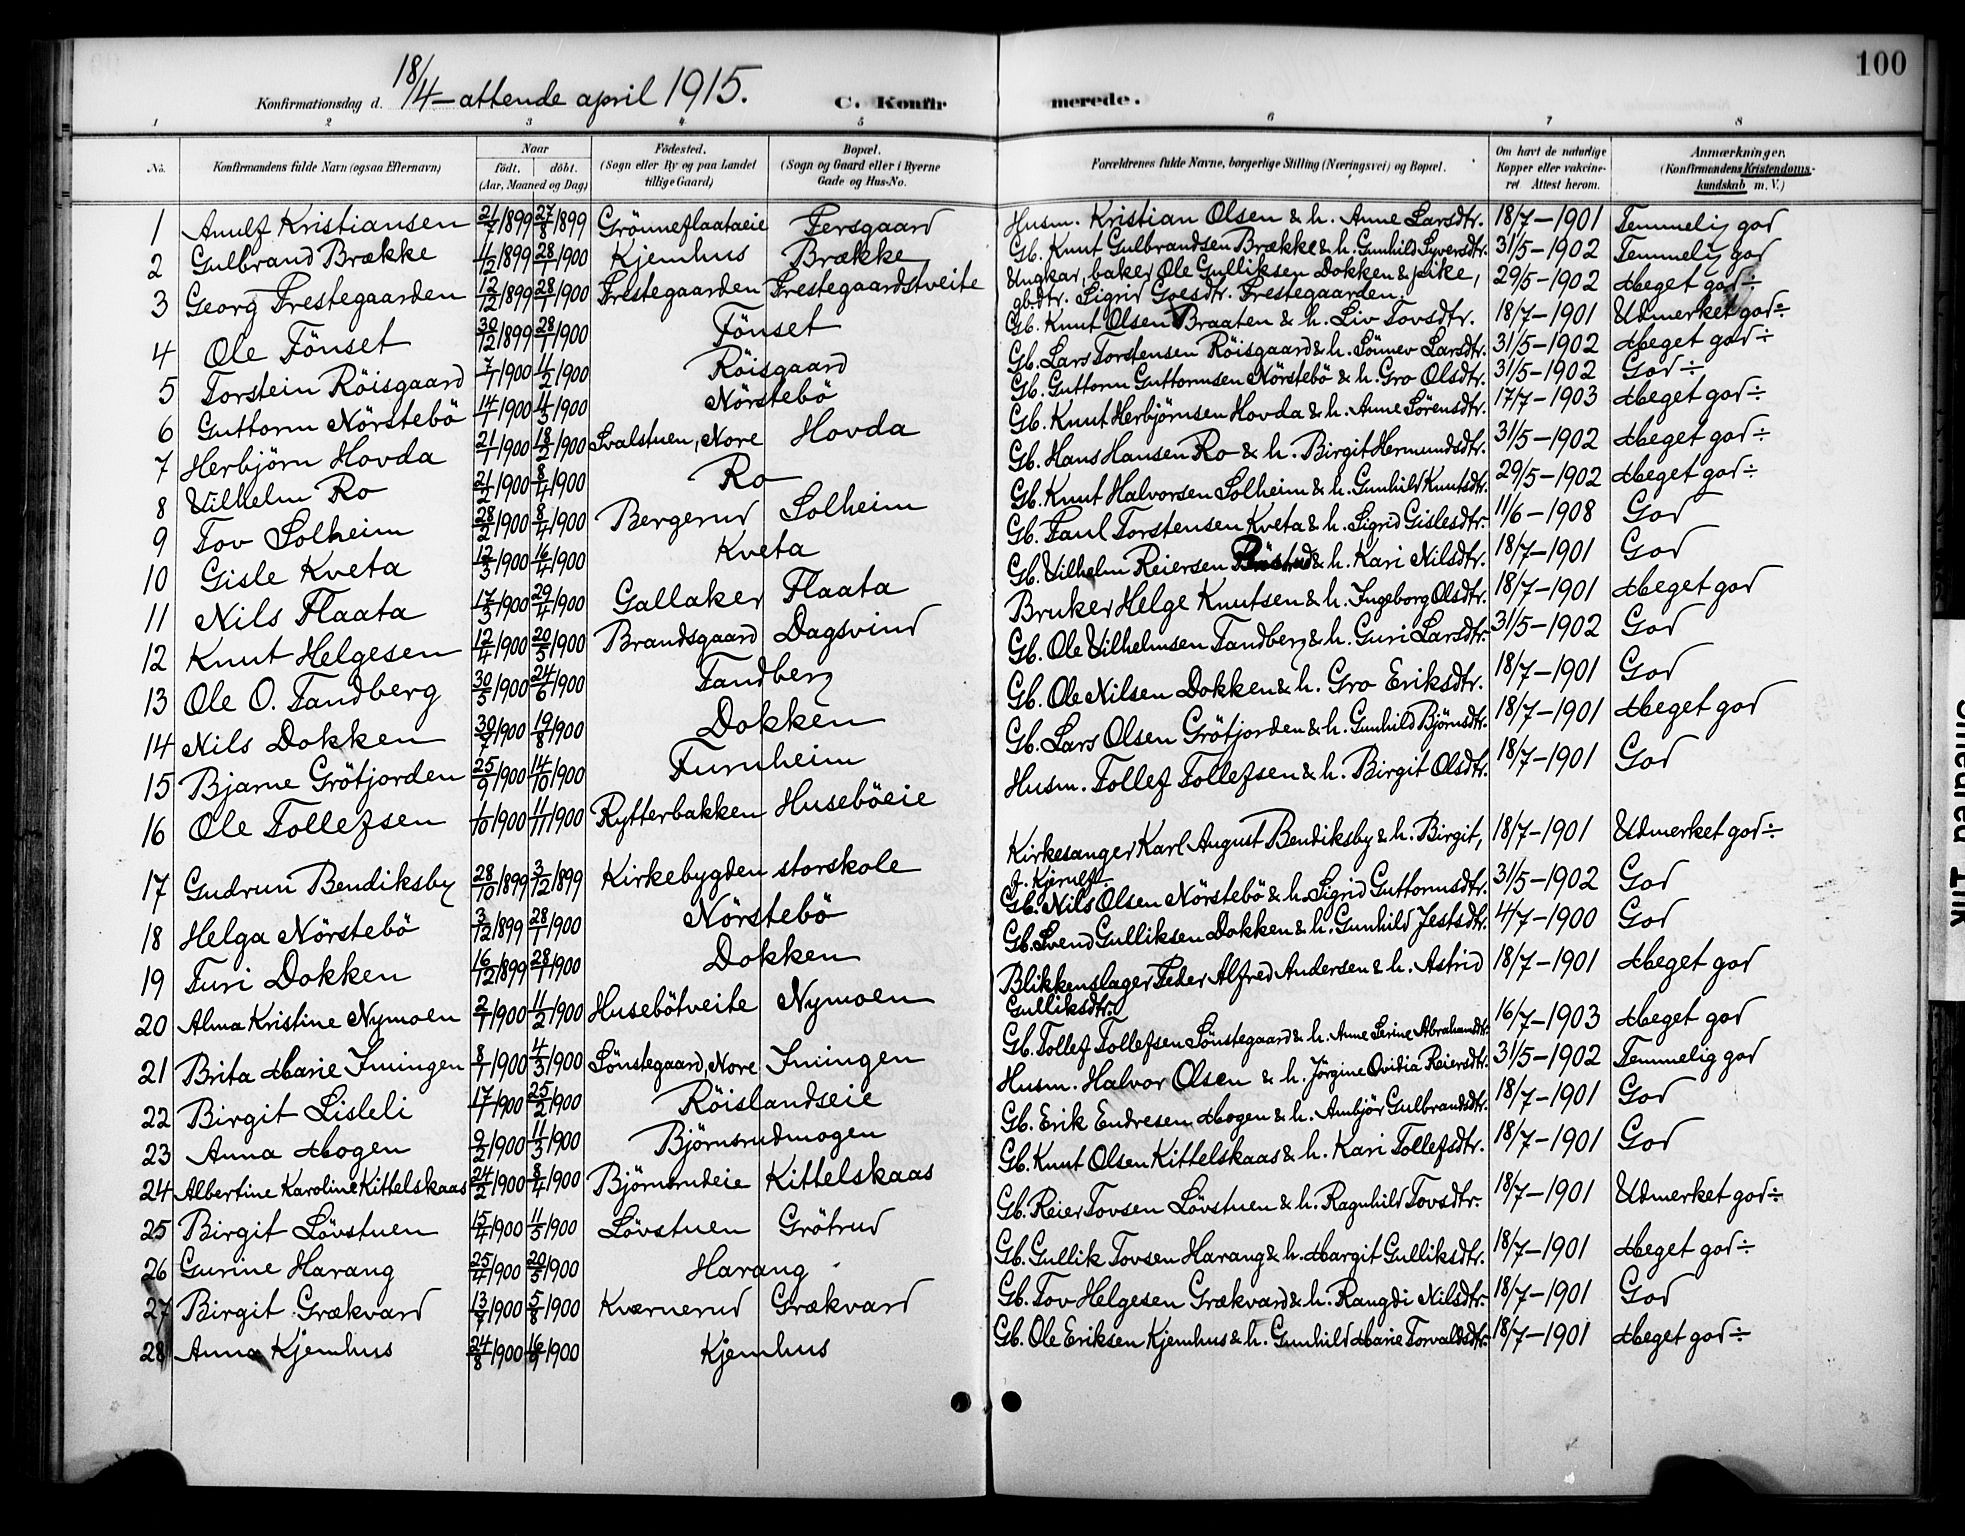 100
Konfirmationsdag d. 18/4 – attende april 1915. C. Konfirmerede.
1 2 3 4 5 6 7 8
No. Konfirmandens fulde Navn (ogsaa Efternavn) Naar født. døbt. (Aar, Maaned og Dag) Fødested. (Sogn eller By og paa Landet tillige Gaard) Bopæl. (Sogn og Gaard eller i Byerne Gade og Hus-No. Forældrenes fulde Navne, borgerlige Stilling (Næringsvei) og Bopæl. Om havt de naturlige Kopper eller vakcineret. Attest herom. Anmærkninger. (Konfirmandens Kristendomskundskab m. V.)
1 Arnulf Kristiansen 21/7 1899 27/8 1899 Grönneflaataeie Persgaard Husm. Kristian Olsen & h. Anne Larsdtr. 18/7 – 1901 Temmelig god
2 Gulbrand Brække 1/12 1899 28/1 1900 Kjemhus Brække Gb. Knut Gulbrandsen Brække & h. Gunhild Syversdtr. 31/5 – 1902 Temmelig god
3 Georg Prestegaarden 12/12 1899 28/1 1900 Prestegaarden Prestegaardstveite Ungkar, baker Ole Gulliksen Dokken & pike, gbdtr. Sigrid Goesdtr. Prestegaarden. 29/5 – 1902 Meget god ÷
4 Ole Fönset 30/12 1899 28/1 1900 Fönset Gb. Knut Olsen Braaten & h. Liv Tovsdtr. 18/7 – 1901 Udmerket god ÷
5 Torstein Röisgaard 7/1 1900 11/2 1900 Röisgaard Gb. Lars Torstensen Röisgaard & h. Sönnev Larsdtr. 31/5 – 1902 Meget god ÷
6 Guttorm Nörstebö 14/1 1900 11/3 1900 Nörstebö Gb. Guttorm Guttormsen Nörstebö & h. Gro Olsdtr. 31/5 – 1902 God ÷
7 Herbjörn Hovda 21/1 1900 18/2 1900 Svalstuen, Nore Hovda Gb. Knut Herbjörnsen Hovda & h. Anne Sörensdtr. 17/7 – 1903 Meget god ÷
8 Vilhelm Ro 21/2 1900 8/4 1900 Ro Gb. Hans Hansen Ro & h. Birgit Hermundsdtr. 31/5 – 1902 Meget god ÷
9 Tov Solheim 28/2 1900 8/4 1900 Bergerud Solheim Gb. Knut Halvorsen Solheim & h. Gunhild Knutsdtr. 29/5 – 1902 Meget god ÷
10 Gisle Kveta 12/3 1900 16/4 1900 Kveta Gb. Paul Torstensen Kveta & h. Sigrid Gislesdtr. 11/6 – 1908 God
11 Nils Flaata 17/3 1900 29/4 1900 Gallaker Flaata Gb. Vilhelm Reiersen & h. Kari Nilsdtr. 18/7 – 1901 God
12 Knut Helgesen 12/4 1900 20/5 1900 Brandsgaard Dagsvind Bruker Helge Knutsen & h. Ingeborg Olsdtr. 18/7 – 1901 Meget god
13 Ole O. Tandberg 30/5 1900 24/6 1900 Tandberg Gb. Ole Vilhelmsen Tandberg & h. Guri Larsdtr. 31/5 – 1902 God
14 Nils Dokken 30/7 1900 19/8 1900 Dokken Gb. Ole Nilsen Dokken & h. Gro Eriksdtr. 18/7 – 1901 God
15 Bjarne Grötjorden 25/9 1900 14/10 1900 Furuheim Gb. Lars Olsen Grötjorden & h. Gunhild Björnsdtr. 18/7 – 1901 Meget god
16 Ole Tollefsen 1/10 1900 11/11 1900 Rytterbakken Huseböeie Husm. Tollef Tollefsen & h. Birgit Olsdtr. 18/7 – 1901 God
17 Gudrun Bendiksby 28/10 1899 3/12 1899 Kirkebygden storskole Kirkesanger Karl August Bendiksby & h. Birgit, 18/7 – 1901 Udmerket god ÷
18 Helga Nörstebö 3/12 1899 28/1 1900 Nörstebö Gb. Nils Olsen Nörstebö & h. Sigrid Guttormsdtr. 31/5 – 1902 God
19 Turi Dokken 16/12 1899 28/1 1900 Dokken Gb. Svend Gulliksen Dokken & h. Gunhild Jestsdtr. 4/7 – 1900 God
20 Alma Kristine Nymoen 2/1 1900 11/2 1900 Husebötveite Nymoen Blikkenslager Peder Alfred Andersen & h. Astrid Gulliksdtr. 18/7 – 1901 Meget god
21 Brita Marie Imingen 8/1 1900 4/3 1900 Sönstegaard, Nore Imingen Gb. Tollef Tollefsen Sönstegaard & h. Anne Serine Abrahamdtr. 16/7 – 1903 Meget god
22 Birgit Lisleli 17/1 1900 25/2 1900 Röislandseie Husm. Halvor Olsen & h. Jörgine Ovidia Reiersdtr. 31/5 – 1902 Temmelig god
23 Anna Mogen 9/2 1900 11/3 1900 Björnsrudmogen Gb. Erik Endresen Mogen & h. Ambjör Gulbrandsdtr. 18/7 – 1901 God
24 Albertine Karoline Kittelskaas 24/2 1900 8/4 1900 Björnsrudeie Kittelskaas Gb. Knut Olsen Kittelskaas & h. Kari Tollefsdtr. 18/7 – 1901 God
25 Birgit Lövstuen 15/4 1900 11/5 1900 Lövstuen Grötrud Gb. Reier Tovsen Lövstuen & h. Ragnhild Tovsdtr. 18/7 – 1901 Udmerket god ÷
26 Gurine Harang 25/4 1900 20/5 1900 Harang Gb. Gullik Tovsen Harang & h. Margit Gulliksdtr. 18/7 – 1901 Meget god ÷
27 Birgit Grækvard 13/7 1900 5/8 1900 Kværnerud Grækvard Gb. Tov Helgesen Grækvard & h. Rangdi Nilsdtr. 18/7 – 1901 God
28 Anna Kjemhus 24/8 1900 16/9 1900 Kjemhus Gb. Ole Eriksen Kjemhus & h. Gunhild Marie Torvaldsdtr. 18/7 – 1901 Meget god ÷